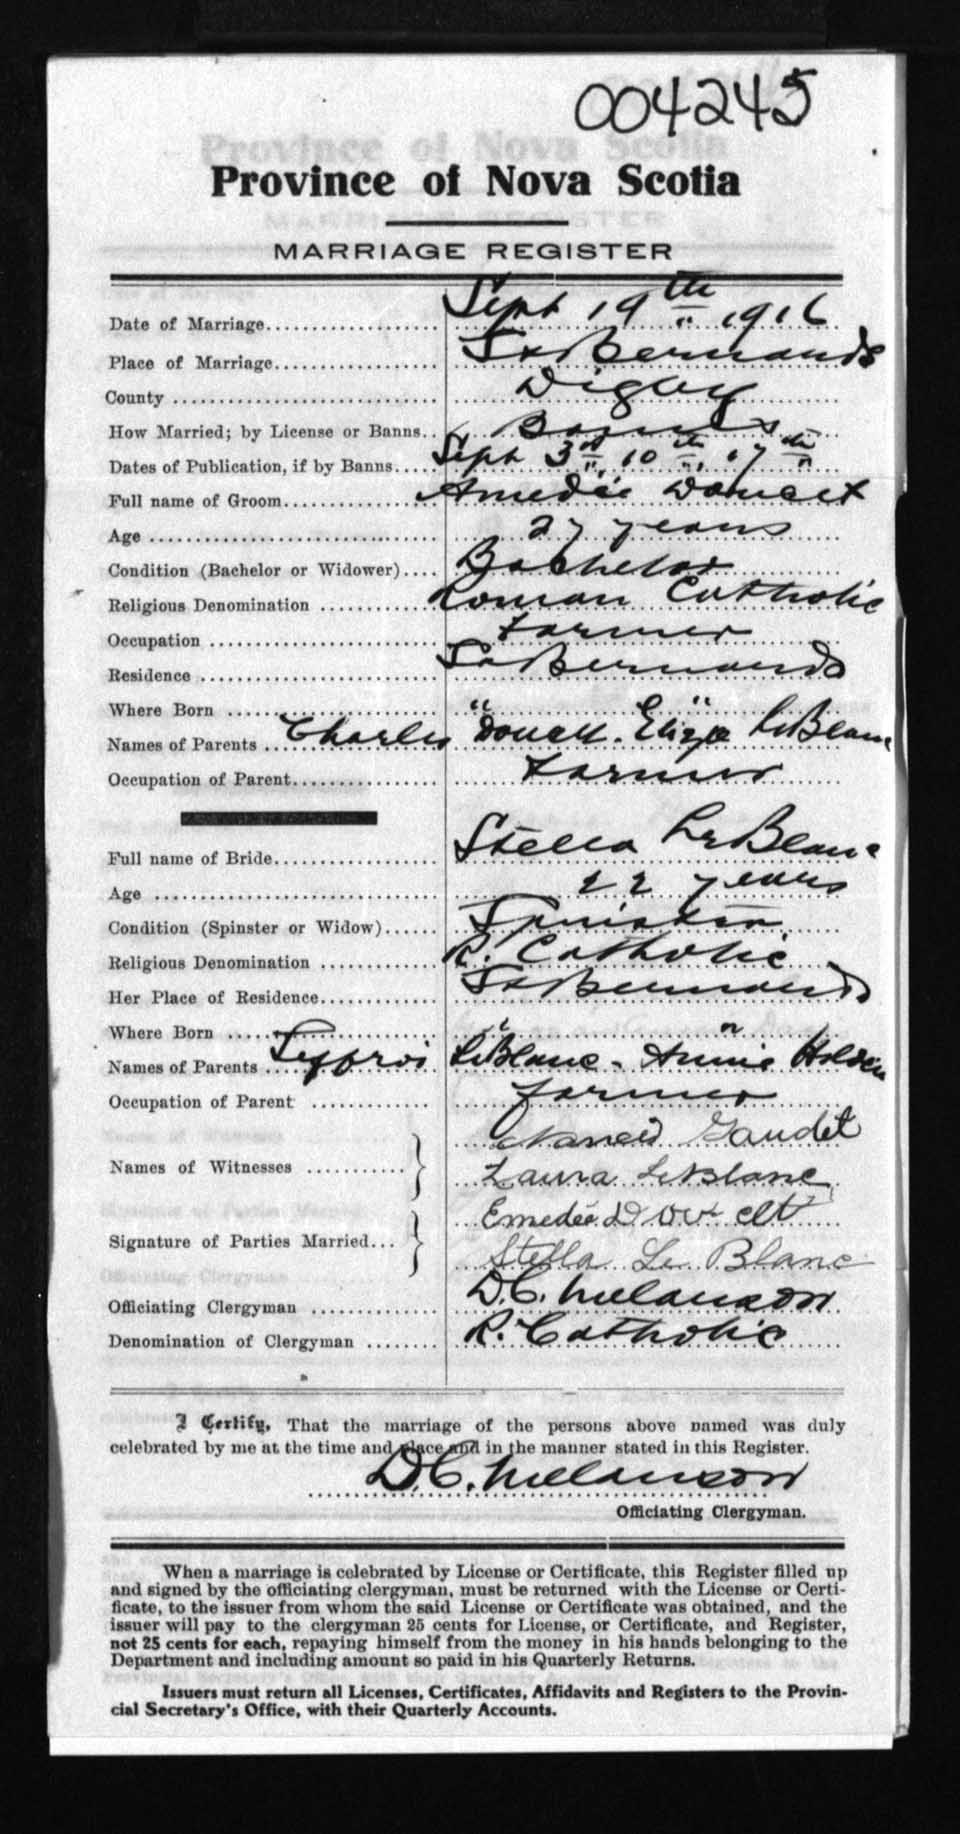 004245
Province of Nova Scotia
MARRIAGE REGISTER
Date of Marriage Sept 19th 1916
Place of Marriage St Bernards
County Digby
How Married; by License or Banns Banns
Dates of Publication, if by Banns Sept 3rd, 10th, 17th
Full name of Groom Amedée Doucet
Age 27 years
Condition (Bachelor or Widower) Bachelor
Religious Denomination Roman Catholic
Occupation Farmer
Residence St Bernards
Where Born " "
Names of Parents Charles Doucett. Eliza LeBlanc
Occupation of Parent Farmer
Full name of Bride Stella LeBlanc
Age 22 years
Condition (Spinster or Widow) Spinster
Religious Denomination R. Catholic
Her Place of Residence St Bernards
Where Born " "
Names of Parents LeBlanc - Annie Holden
Occupation of Parent farmer
Gaudet
Names of Witnesses Laura LeBlanc
Emedée Doucett
Signature of Parties Married
Stella Le Blanc
Officiating Clergyman D.C. Melanson
Denomination of Clergyman R. Catholic
I Certify, That the marriage of the persons above named was duly
celebrated by me at the time and place and in the manner stated in this Register.
D.C. Melanson
Officiating Clergyman.
When a marriage is celebrated by License or Certificate, this Register filled up
and signed by the officiating clergyman, must be returned with the License or Certi-
ficate, to the issuer from whom the said License or Certificate was obtained, and the
issuer will pay to the clergyman 25 cents for License, or Certificate, and Register,
not 25 cents for each, repaying himself from the money in his hands belonging to the
Department and including amount so paid in his Quarterly Returns.
Issuers must return all Licenses, Certificates, Affidavits and Registers to the Provin-
cial Secretary's Office, with their Quarterly Accounts.